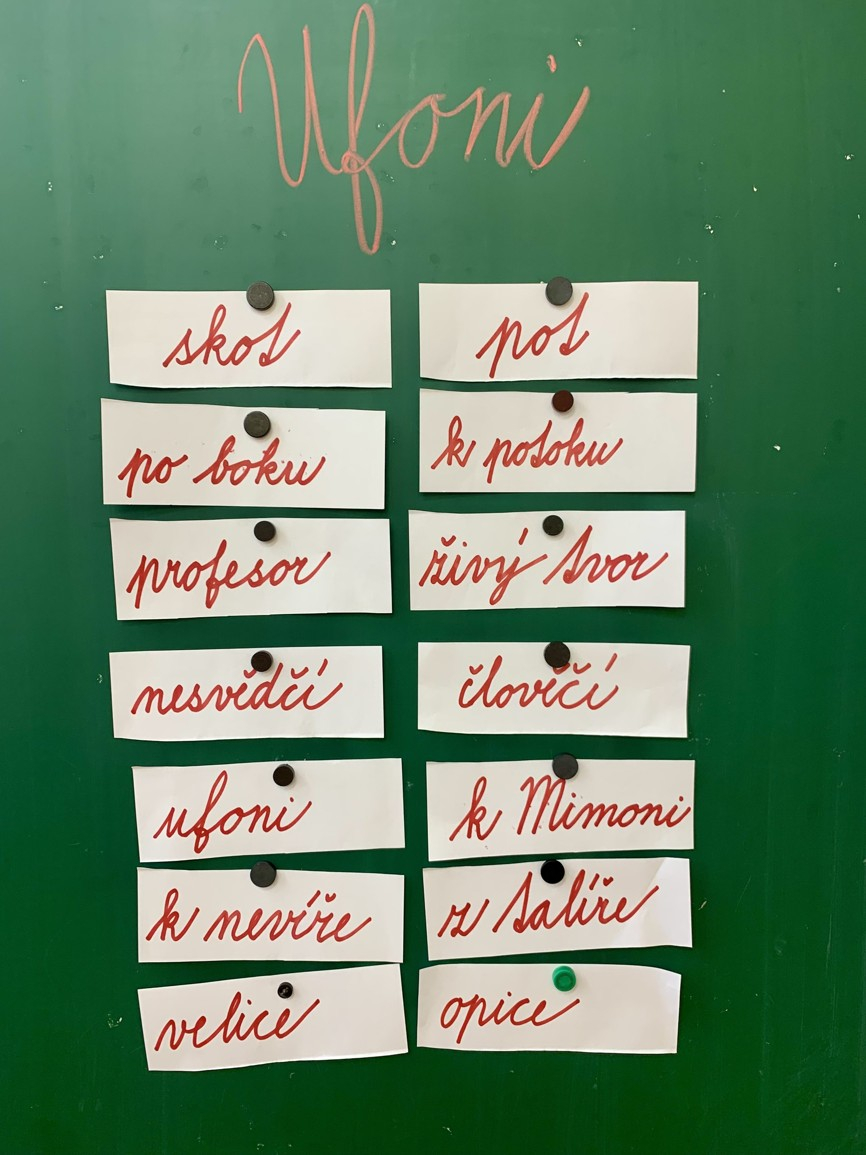 Ufoni
skot
pot
po boku
k potoku
profesor
živý tvor
nesvědčí
člověčí
ufoni
k Mimoni
k nevíře
z talíře
velice
opice